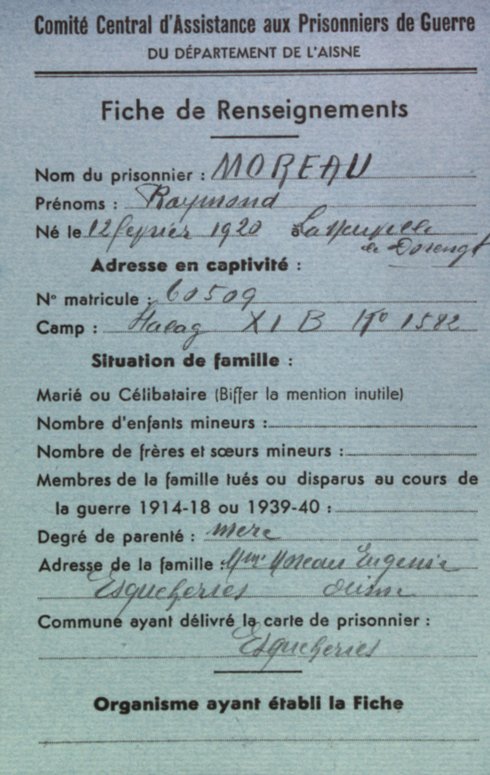 Comité Central d'Assistance aux Prisonniers de Guerre
DU DÉPARTEMENT DE L'AISNE
Fiche de Renseignements
Nom du prisonnier : MOREAU
Prénoms : Raymond
Né le 12 février 1920 à La Neuville
de Dorengt
Adresse en captivité :
N° matricule : 60509
Camp : Stalag XI B Kº 1582
Situation de famille :
Marié ou Célibataire (Biffer la mention inutile)
Nombre d'enfants mineurs :
Nombre de frères et sœurs mineurs :
Membres de la famille tués ou disparus au cours de
la guerre 1914-18 ou 1939-40 :
Degré de parenté : mere
Adresse de la famille : Mme Moreau Eugenie
Esqueheries Aisne
Commune ayant délivré la carte de prisonnier :
Esqueheries
Organisme ayant établi la Fiche